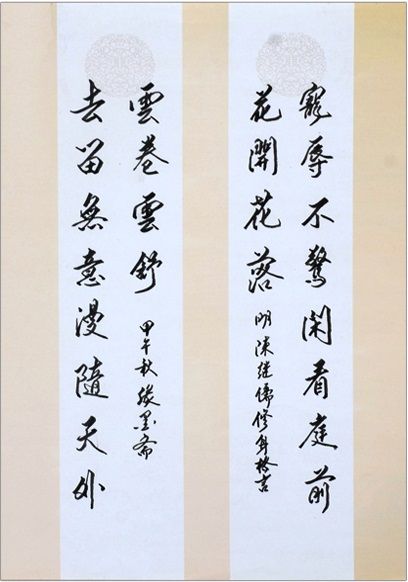 寵辱不驚閑看庭前
花開花落
明陳继儒修身格言
去留無意漫隨天外
雲卷雲舒
甲午秋墨斋